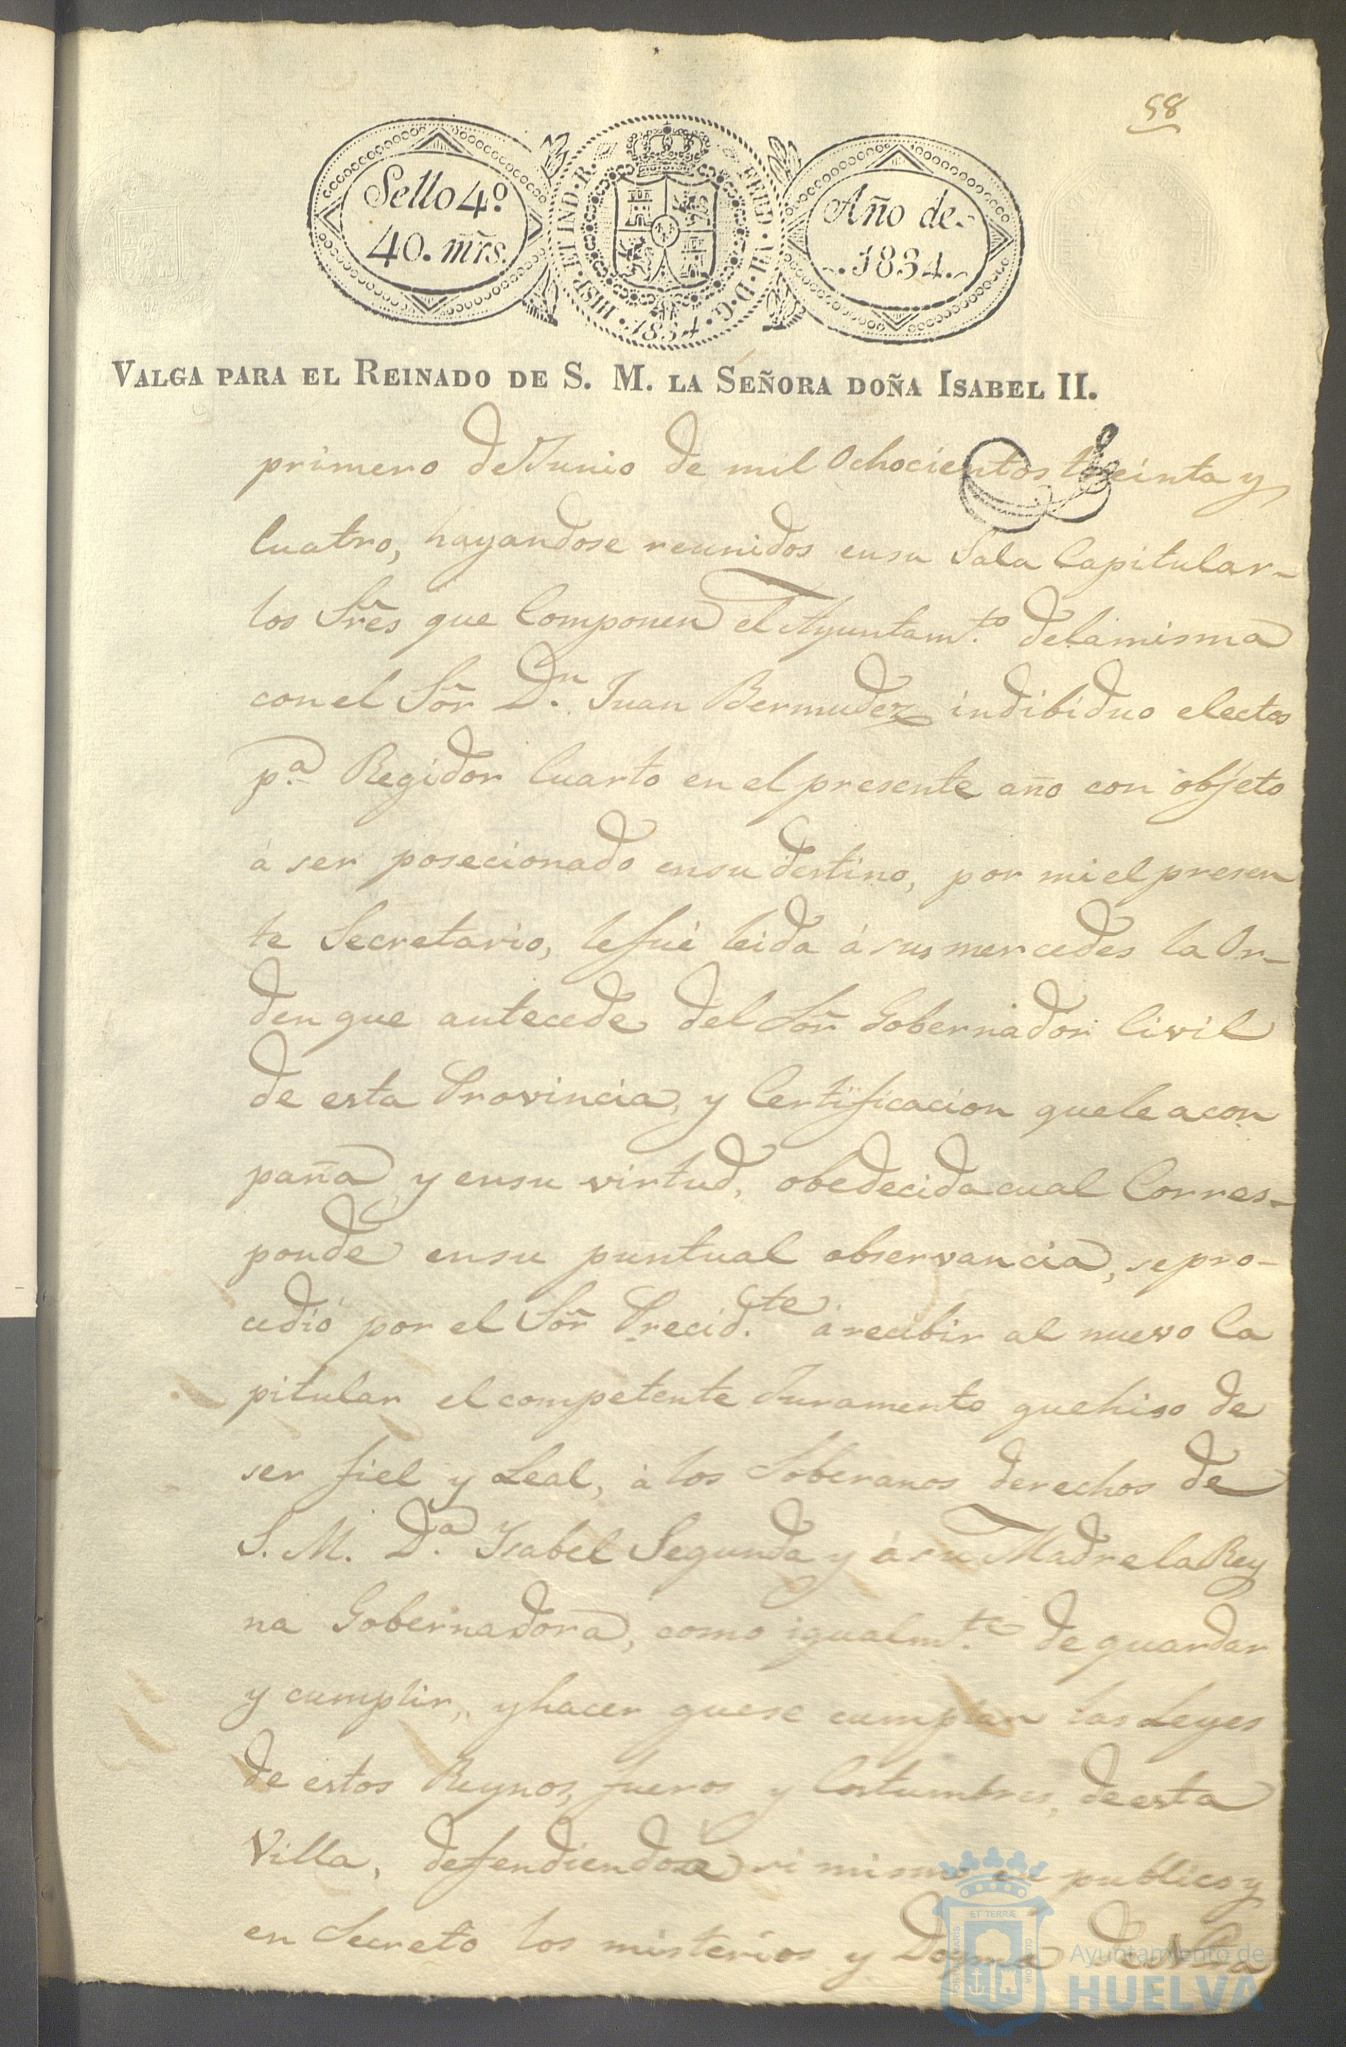 58
Sello 4.º
40. mrs.
HISP. ET IND. R.
FERD. VII. D. G.
1834
Año de
1834.
VALGA PARA EL REINADO DE S. M. LA SEÑORA DOÑA ISABEL II.
primero de Junio de mil Ochocientos treinta y
Cuatro, hayandose reunidos en su Sala Capitular
los Sres que Componen el Ayuntam.to de la misma
con el Sor D.n Juan Bermudez indibiduo electos
p.a Regidor Cuarto en el presente año con objeto
á ser posecionado en su destino, por mi el presen
te Secretario, le fué leida á sus mercedes la Or-
den que antecede del Sor Gobernador Civil
de esta Provincia, y Certificacion que le acon
paña y en su virtud, obedecida cual Corres-
ponde en su puntual observancia, se pro-
cedió por el Sor Precid.te á recibir al nuevo Ca
pitular el competente Juramento que hiso de
ser fiel y Leal, á los Soberanos derechos de
S. M. D.a Ysabel Segunda y á su Madre la Rey
na Gobernadora, como igualm.te de guardar
y cumplir, y hacer que se cumplan las Leyes
de estos Reynos, fueros y Costumbres, de esta
Villa, defendiendo asi mismo en publico y
en Secreto los misterios y Dogma de Nra
ET TERRÆ
Ayuntamiento de
HUELVA